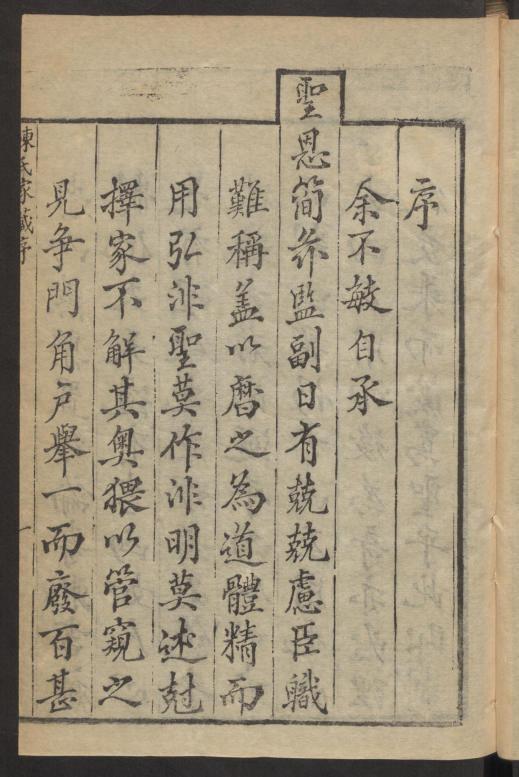 序
余不敏自承
聖恩簡充監副日有兢兢慮臣職
難稱盖以曆之為道體精而
用弘非聖莫作非明莫述尅
擇家不解其奧猥以管窺之
見争門角户舉一而廢百甚
陳氏家藏序
一